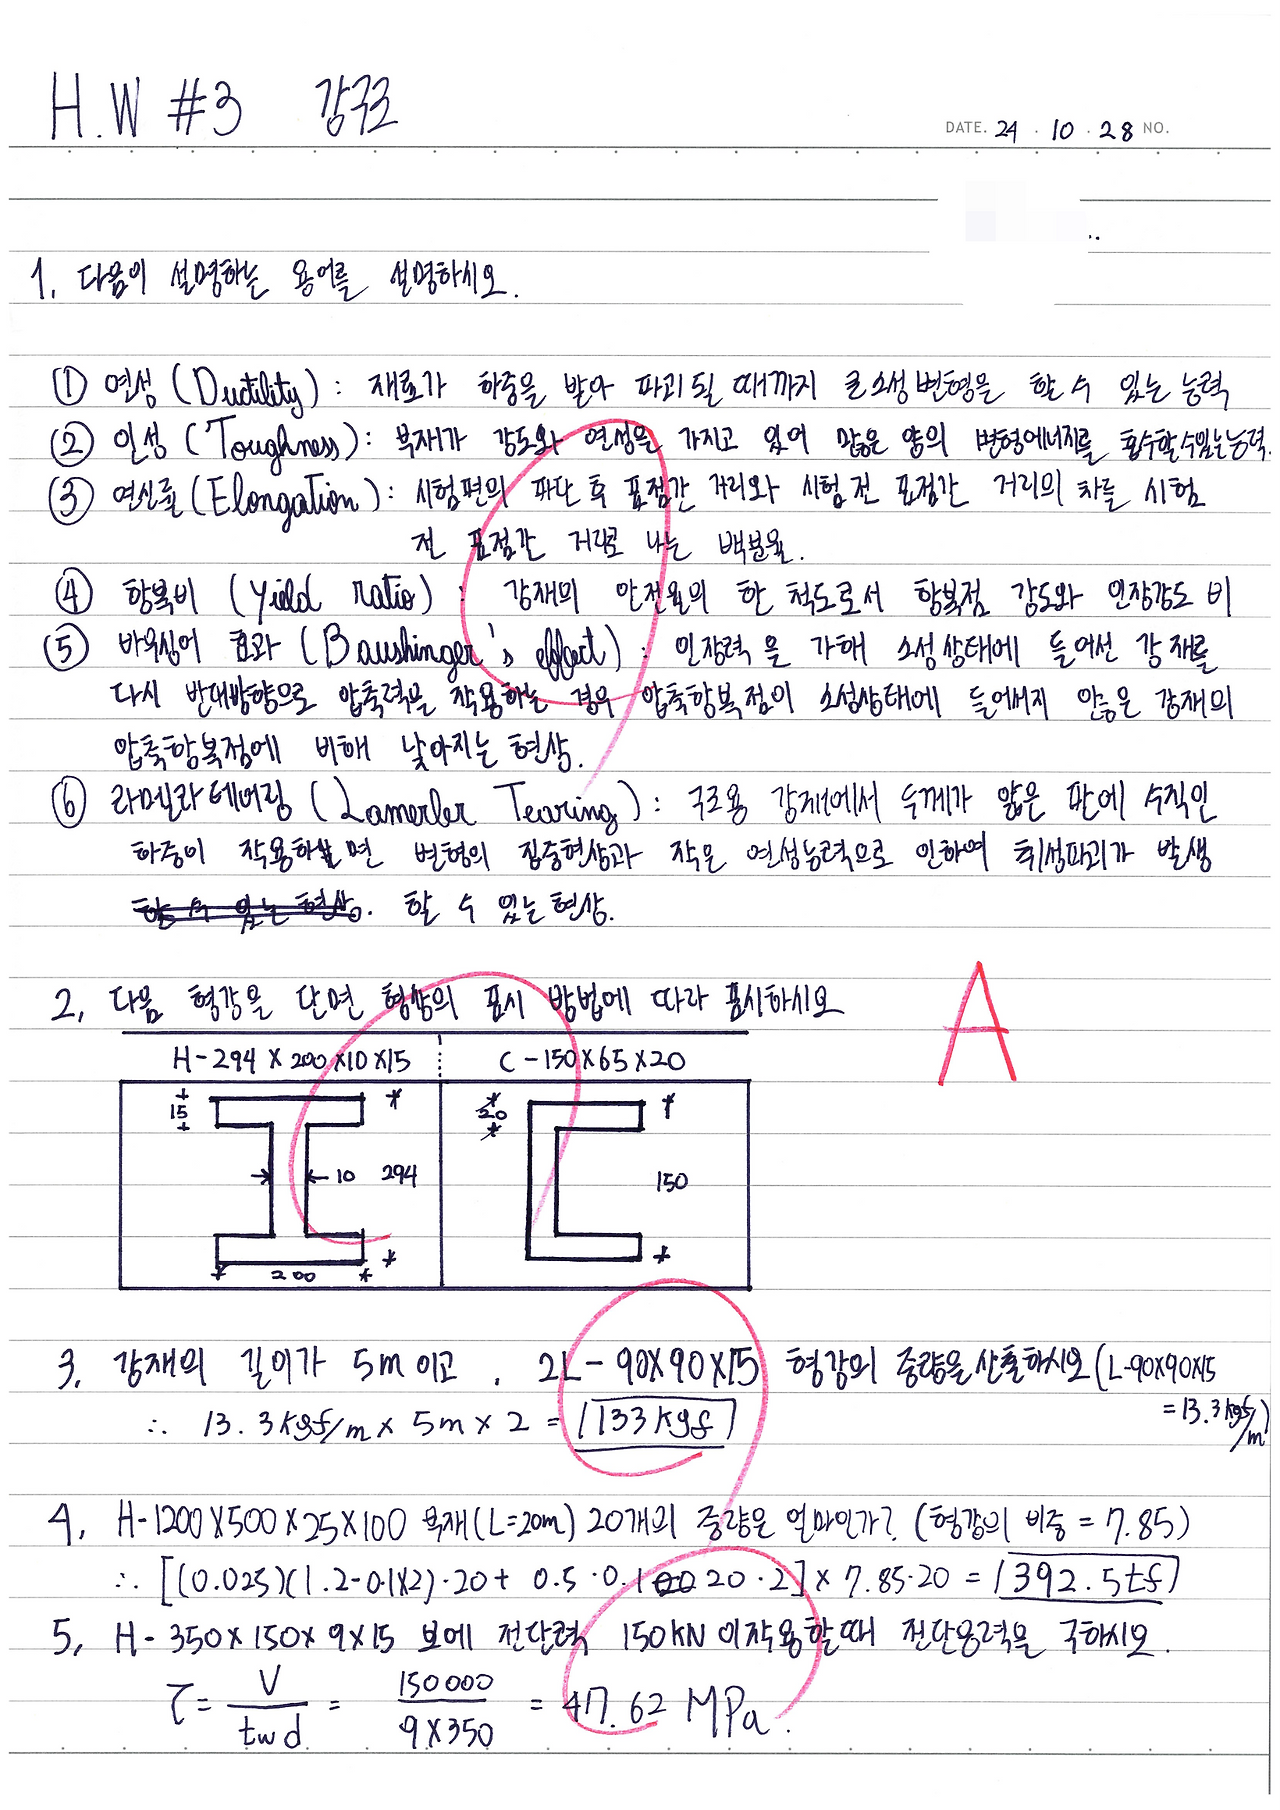 H.W #3 강구조
DATE. 24 . 10 . 28 NO.
1. 다음이 설명하는 용어를 설명하시오.
① 연성 (Ductility) : 재료가 하중을 받아 파괴될 때까지 큰 소성변형을 할 수 있는 능력
② 인성 (Toughness) : 부재가 강도와 연성을 가지고 있어 많은 양의 변형에너지를 흡수할 수 있는 능력.
③ 연신률 (Elongation) : 시험편의 파단 후 표점간 거리와 시험 전 표점간 거리의 차를 시험
전 표점간 거리로 나눈 백분율.
④ 항복비 (Yield ratio) : 강재의 안전율의 한 척도로서 항복점 강도와 인장강도 비
⑤ 바우싱어 효과 (Baushinger's effect) : 인장력을 가해 소성상태에 들어선 강재를
다시 반대방향으로 압축력을 작용하는 경우 압축항복점이 소성상태에 들어서지 않은 강재의
압축항복점에 비해 낮아지는 현상.
⑥ 라멜라 테어링 (Lamerler Tearing) : 구조용 강재에서 두께가 얇은 판에 수직인
하중이 작용하면 변형의 집중현상과 작은 연성능력으로 인하여 취성파괴가 발생
할 수 있는 현상. 할 수 있는 현상.
2. 다음 형강을 단면 형상의 표시 방법에 따라 표시하시오
A
H-294 X 200 X10 X15 C-150X65X20
15
10 294
200
20
150
3. 강재의 길이가 5m 이고, 2L-90X90X15 형강의 중량을 산출하시오 (L-90X90X15
= 13.3kgf/m)
∴ 13.3kgf/m x 5m x 2 = 133 kgf
4. H-1200X500X25X100 부재(L=20m) 20개의 중량은 얼마인가? (형강의 비중 = 7.85)
∴ [(0.025)(1.2-0.1X2)·20+ 0.5·0.1 20·2] x 7.85·20 = 392.5tf
5. H-350x150x9x15 보에 전단력 150KN이 작용할 때 전단응력을 구하시오.
τ = V / tw d = 150000 / 9X350 = 47.62 MPa.